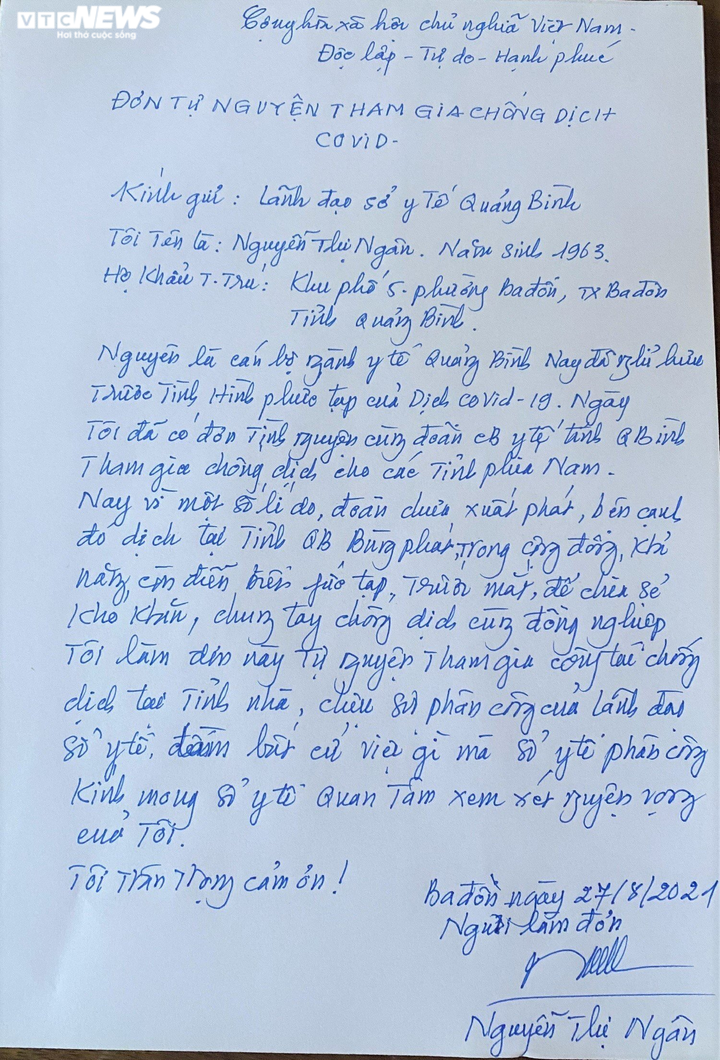 VTC NEWS
Hơi thở cuộc sống
Cộng hòa xã hội chủ nghĩa Việt Nam -
Độc lập - Tự do - Hạnh phúc
ĐƠN TỰ NGUYỆN THAM GIA CHỐNG DỊCH
COVID -
Kính gửi : Lãnh đạo sở y Tế Quảng Bình
Tôi Tên là : Nguyễn Thị Ngân . Năm sinh 1963.
Hộ Khẩu T. Trú : Khu phố 5 - phường Ba đồn, TX Ba đồn
Tỉnh Quảng Bình.
Nguyên là cán bộ ngành y tế Quảng Bình Nay đã nghỉ hưu
Trước Tình Hình phức tạp của Dịch Covid-19. Ngày
Tôi đã có đơn Tình nguyện cùng đoàn CB y tế tỉnh QBình
Tham gia chống dịch cho các Tỉnh phía Nam -
Nay vì một số lí do, đoàn chưa xuất phát, bên cạnh
đó dịch tại Tỉnh QB Bùng phát, Trong cộng đồng, Khả
năng còn diễn biến phức tạp, Trước mắt, để chia sẻ
Khó Khăn, chung tay chống dịch cùng đồng nghiệp
Tôi làm đơn này Tự nguyện Tham gia công tác chống
dịch tại Tỉnh nhà, chịu sự phân công của Lãnh đạo
Sở y tế, làm bất cứ việc gì mà Sở y tế phân công
Kính mong Sở y tế Quan Tâm xem xét nguyện vọng
của Tôi.
Tôi Trân Trọng cảm ơn !
Ba đồn ngày 27/8/2021
Người làm đơn
Nguyễn Thị Ngân